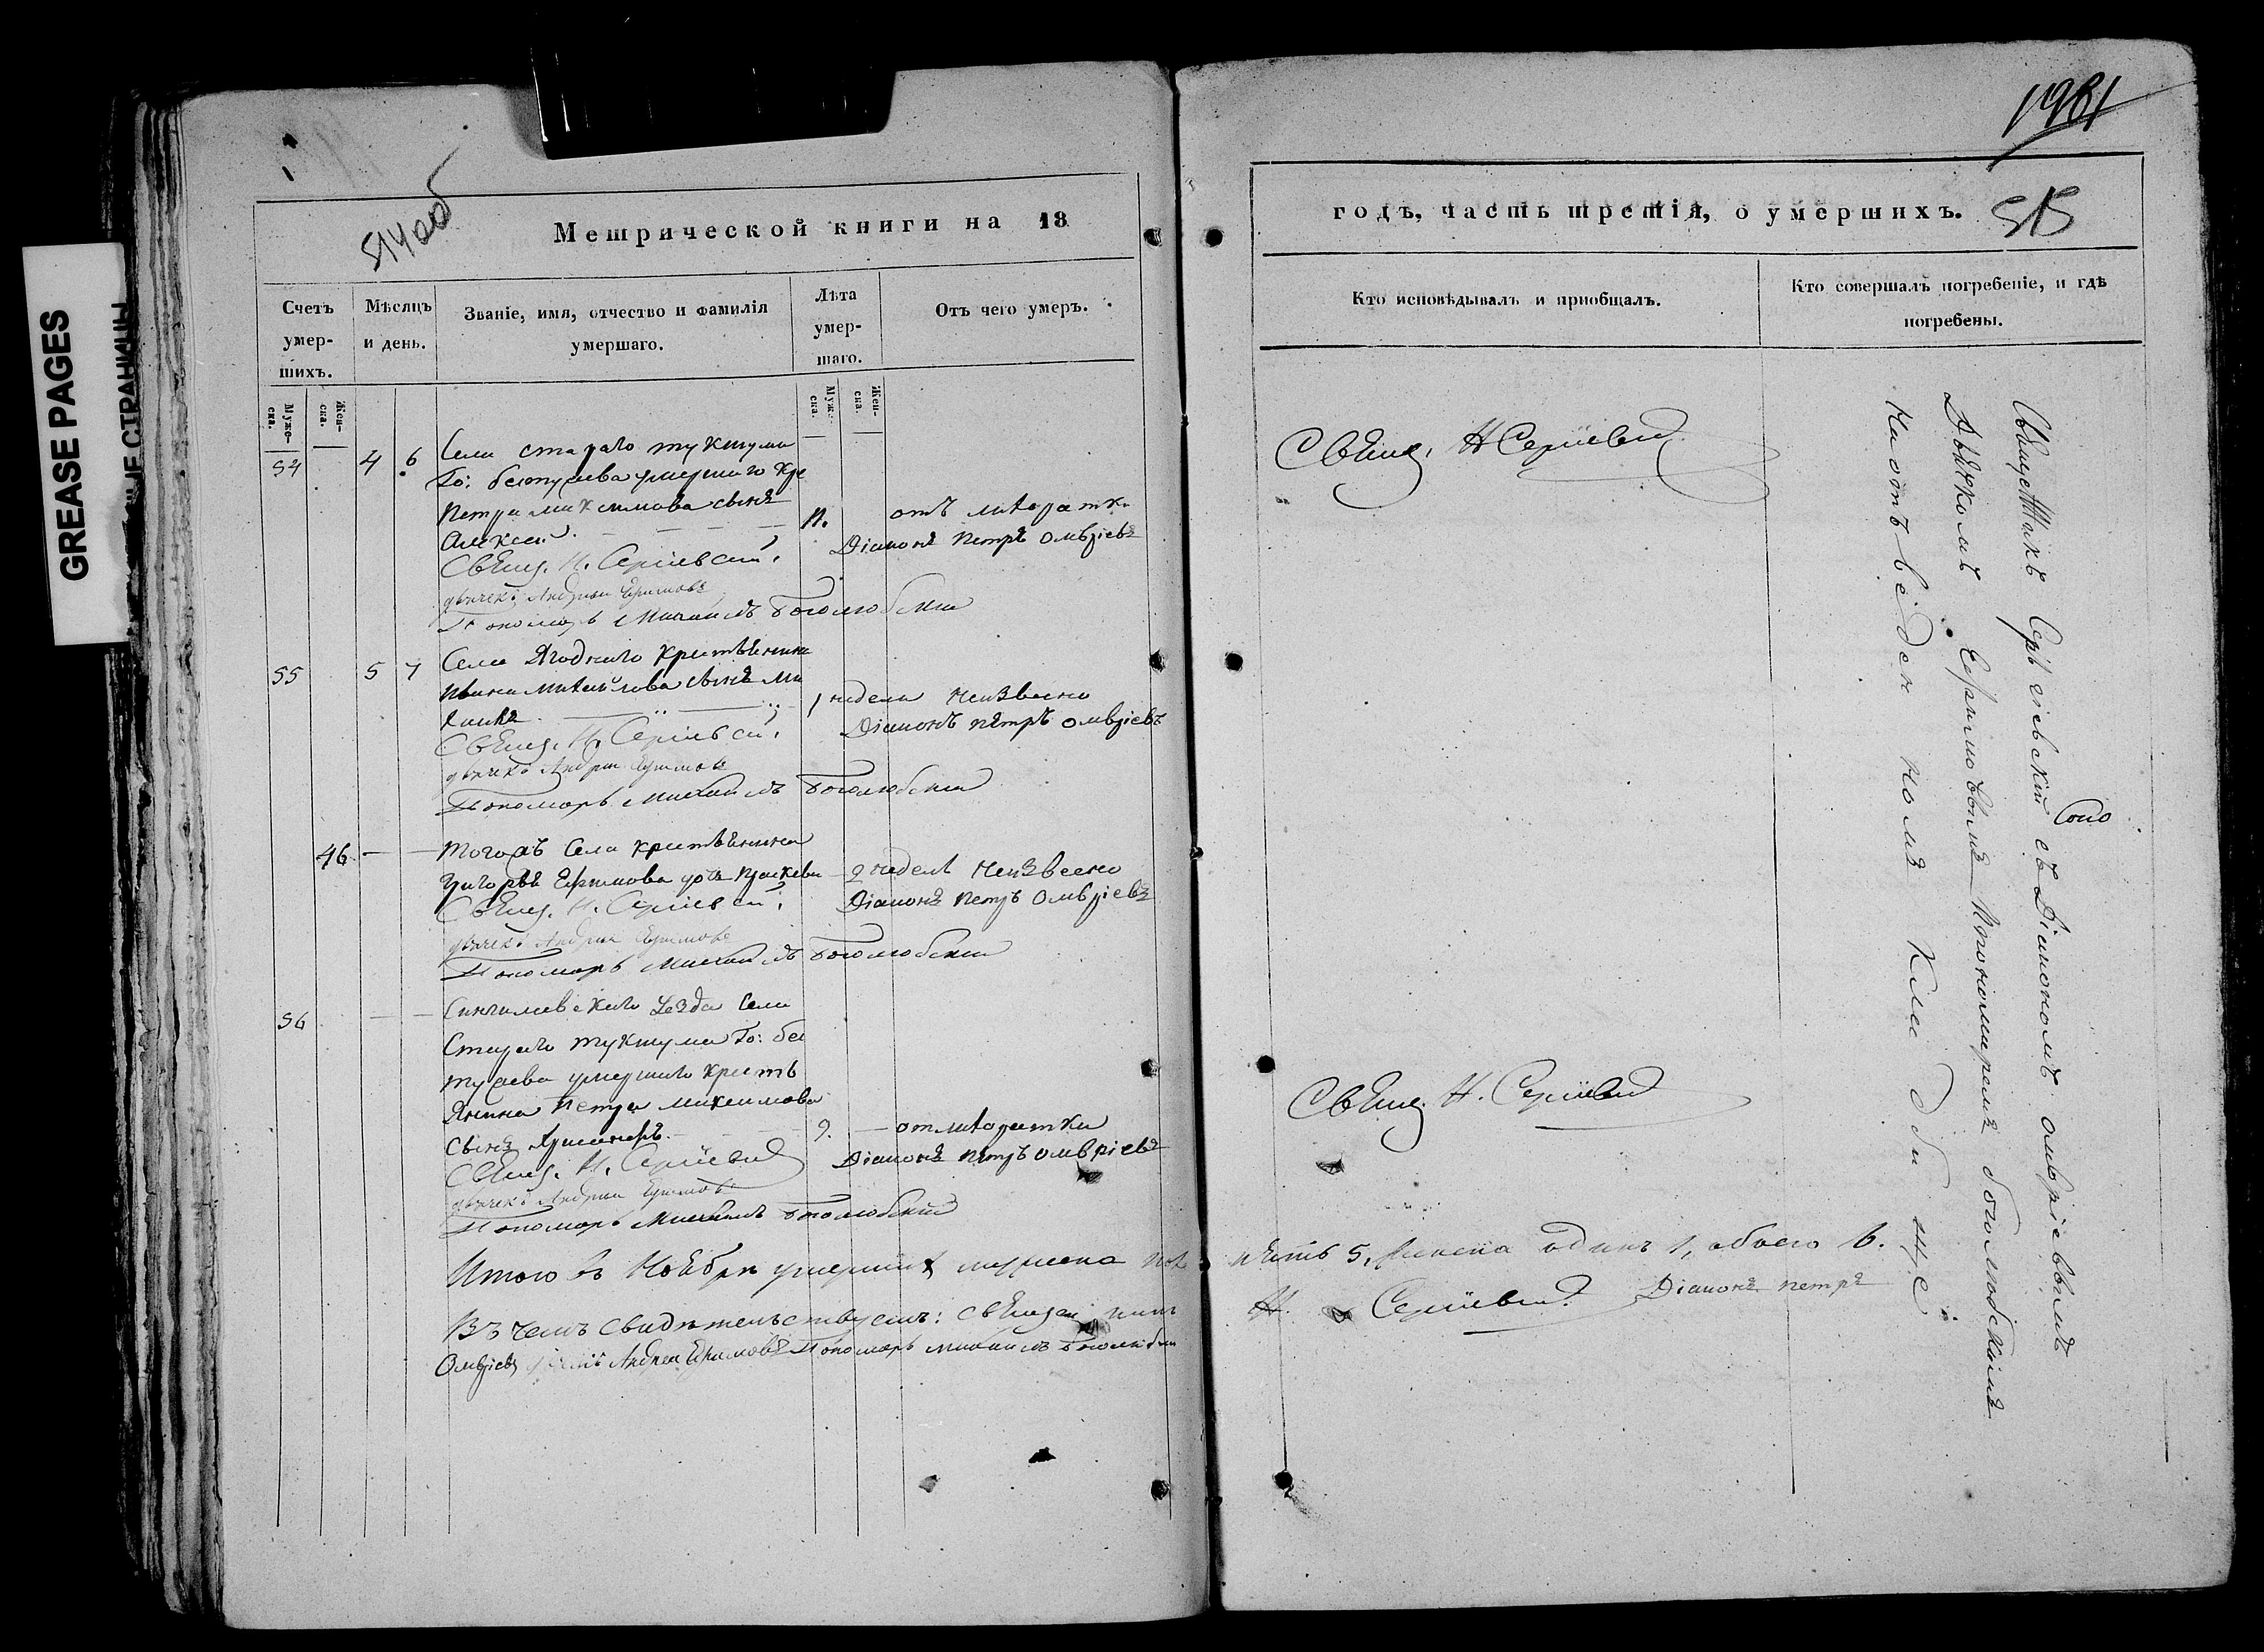 GREASE PAGES
ЫЕ СТРАНИЦЫ
514об
Метрической книги на 18
Счетъ умер-шихъ.
Мѣсяцъ и день.
Званіе, имя, отчество и фамилія умершаго.
Лѣта умер-шаго.
Отъ чего умеръ.
Муже-ска.
Жен-ска.
Муж. ска.
Жен-ска.
54 4 6 Села стараго тукшума
Го: бестужева умершаго кре
Петра максимова сынъ
Алексей 11. отъ лихоратки
Свящ. Н. Сергіевскій. Діаконъ Петръ Омвріевъ
дьячекъ Андрей Ефимовъ
Пономарь Михаилъ Боголюбскій
55 5 7 Села Ягоднаго крестьянина
Ивана михайлова сынъ ми
хаилъ 1 недели неизвесно
Свящ. Н. Сергіевскій. Діаконъ петръ омвріевъ
дьячекъ Андрей Ефимовъ
Пономарь Михаилъ Боголюбскій
46 — — Тогожъ Села крестьянина
Григорья Ефимова дочь 2 неделъ неизвесно
Свящ. Н. Сергіевскій. Діаконъ петръ Омвріевъ
дьячекъ Андрей Ефимовъ
Пономарь Михаилъ Боголюбскій
56 — — уезда Села
Стараго тукшума Го: бес
тужева умершаго кресть
янина Петра максимова
Сынъ 9. — от лихоратки
Свящ. Н. Сергіевскій Діаконъ петръ омвріевъ
дьячекъ Андрей Ефимовъ
Пономарь Михаилъ Боголюбскій
Итого въ Ноябрѣ умершихъ мужеска пол
Въ чемъ свидѣтельствуемъ: священникъ
Омвріевъ Андрей Ефимовъ Пономарь михаилъ Боголюбскій
1981
годъ, часть третія, о умершихъ.
515
Кто исповѣдывалъ и приобщалъ.
Кто совершалъ погребеніе, и гдѣ погребены.
Свящ. Н Сергіевскій
Свящ. Н. Сергіевскій
пять 5, женска одинъ 1, обоего 6.
Н. Сергіевскій. Діаконъ петръ
Священникъ Сергіевскій съ Діакономъ омвріевымъ Сопо
Дьячкомъ Ефимовымъ Ипономаремъ боголюбскимъ
на отъведенномъ кладбище